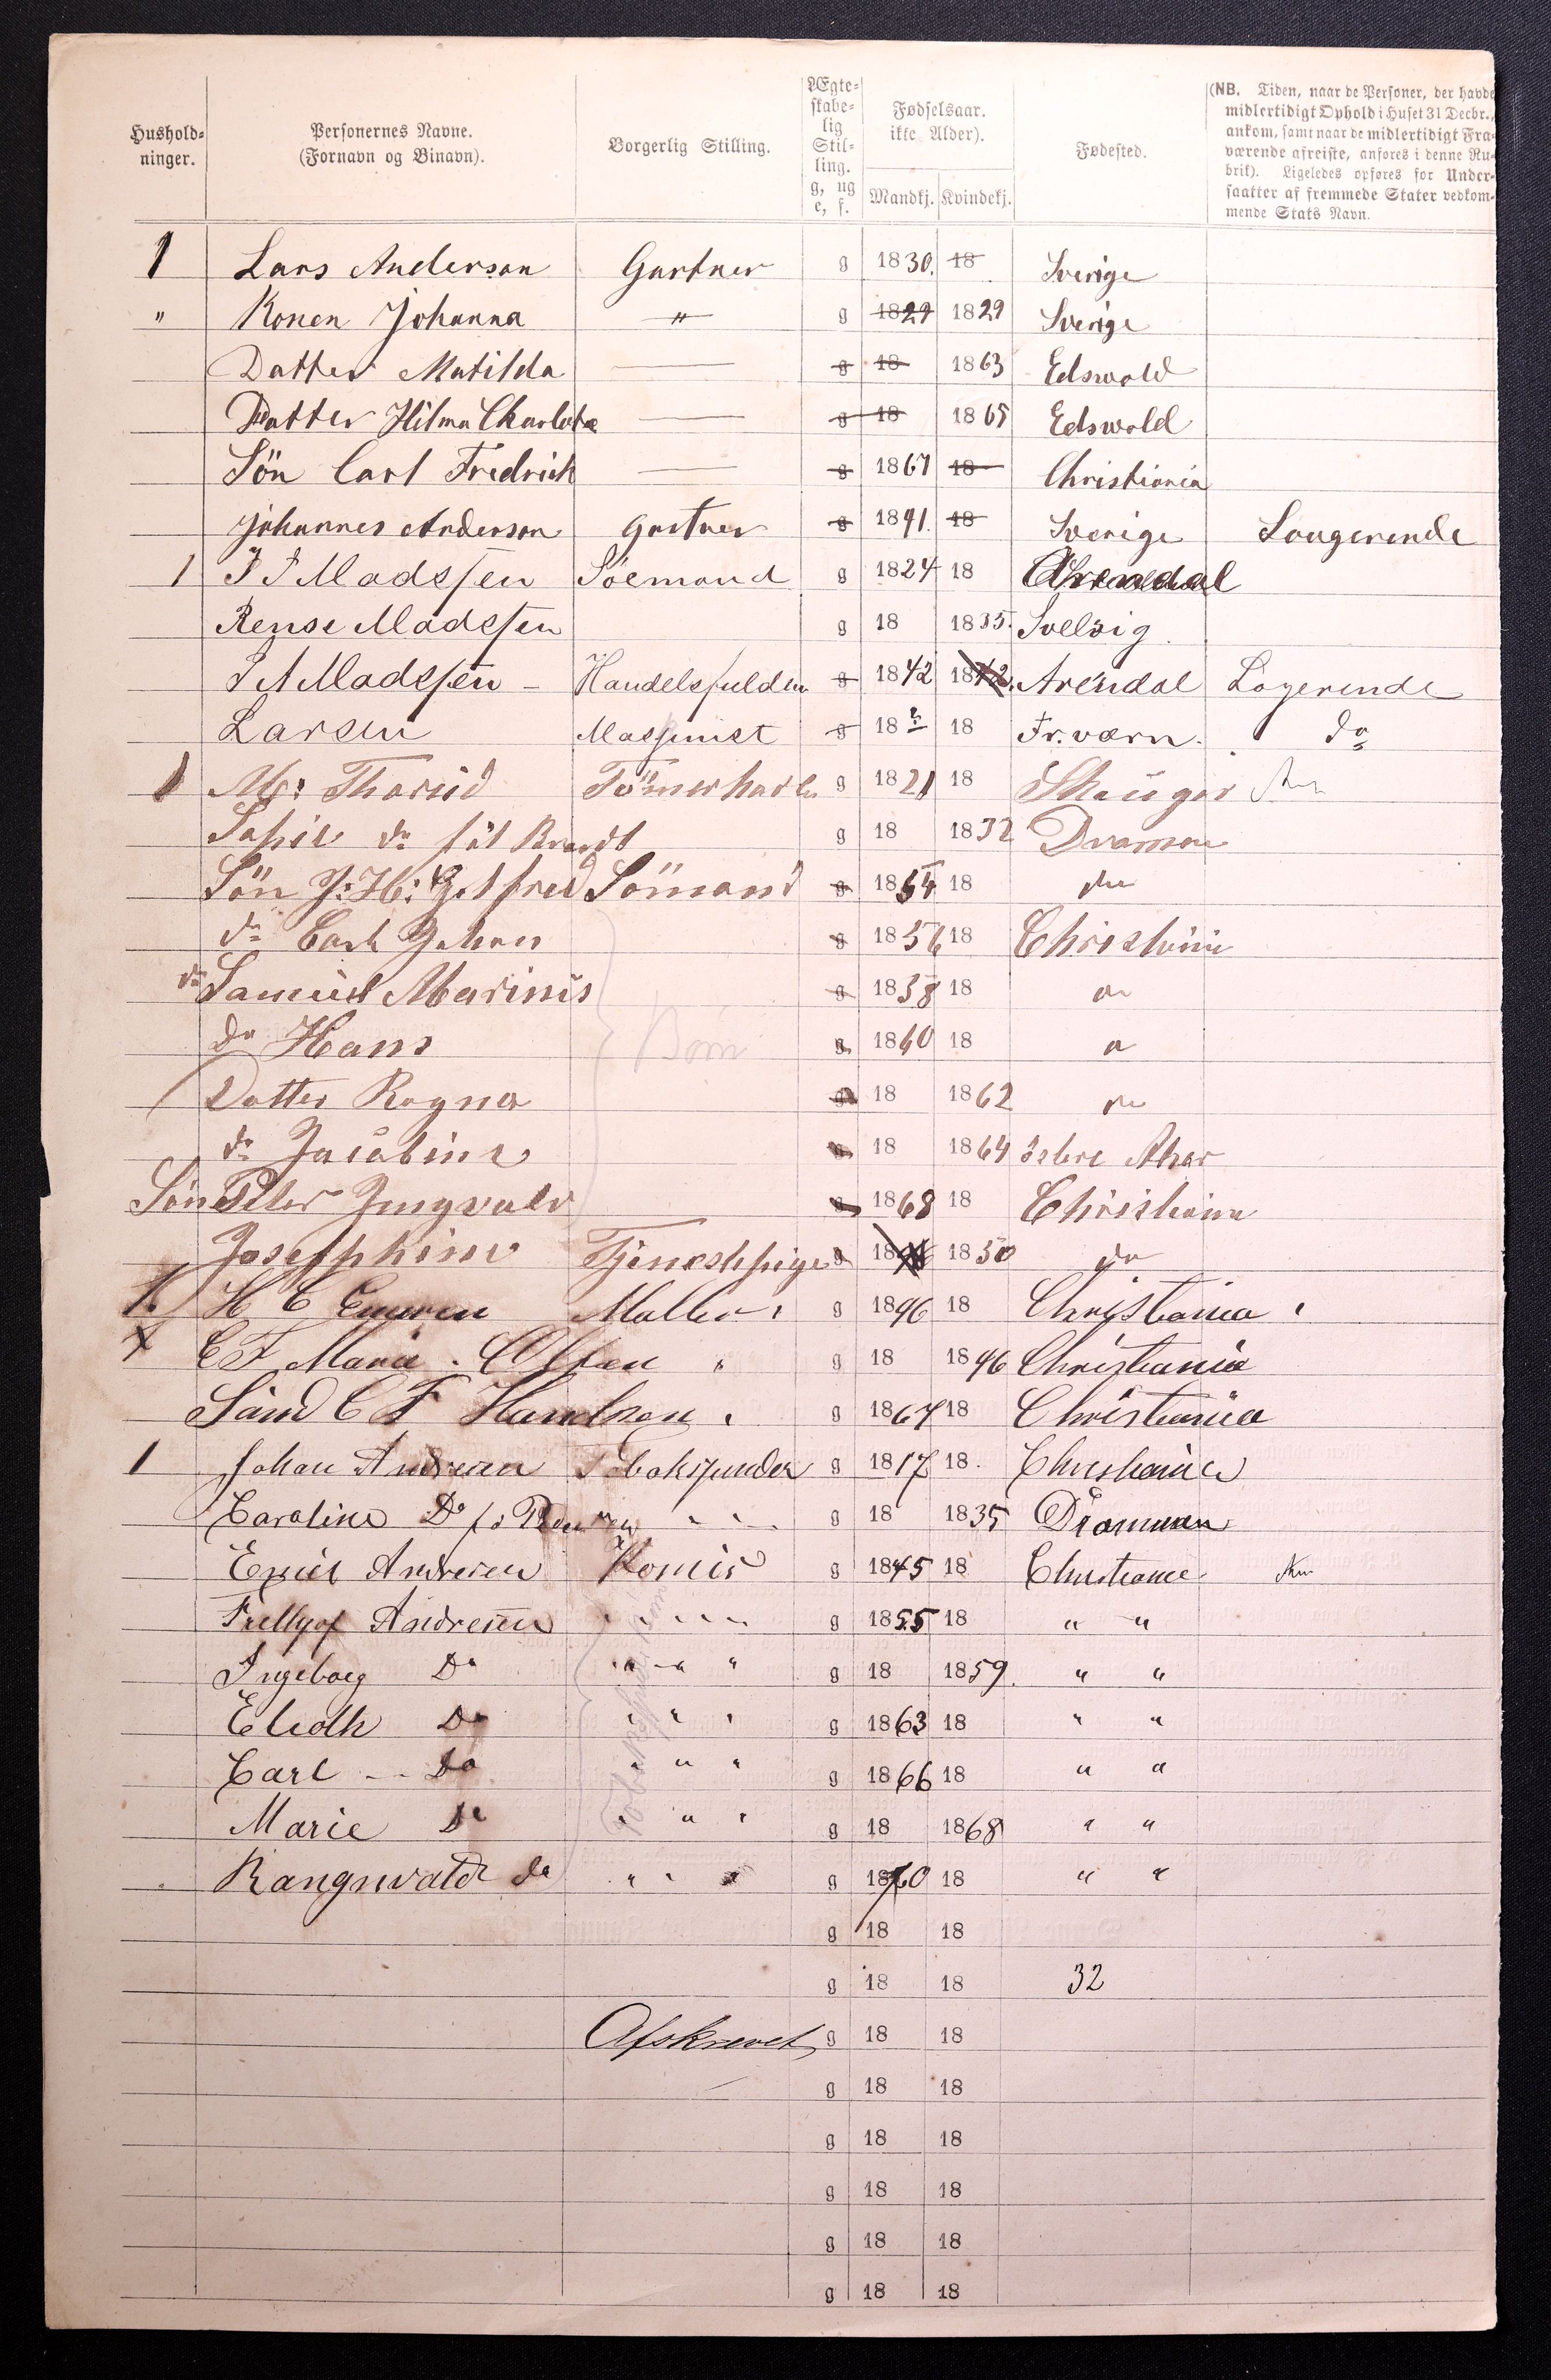 Hushold-ninger. Personernes Navne. (Fornavn og Binavn). Borgerlig Stilling. Ægte-skabe-lig Stil-ling. g, ug e, f. Fødselsaar. ikke Alder). Mandkj. Kvindekj. Fødested. (NB. Tiden, naar de Personer, der havde midlertidigt Ophold i Huset 31 Decbr., ankom, samt naar de midlertidigt Fra-værende afreiste, anføres i denne Ru-brik). Ligeledes opføres for Under-saatter af fremmede Stater vedkom-mende Stats Navn.
1 Lars Anderson Gartner g 1830. 18 Sverige
" Konen Johanna " g 1829 1829 Sverige
Datter Matilda g 18 1863 Edswold
Datter Hilma Charlotta g 18 1865 Edswold
Sön Carl Fredrich g 1867 18 Christiania
Johannes Anderson Gartner g 1841. 18 Sverige Lougerende
1 Madssen Söemand g 1824 18 Arendal
Rense Madssen g 18 1835. Svelvig
Madssen Handelsfulder g 1842 1842. Arendal Logerende
Larsen Massinist g 18 18 Fr.værn. do
1 Thorud g 1821 18
do föt Brandt g 18 1832 Dramen
Sön J: H: Gotfred Sömand g 1854 18 do
do Carl Johan g 1856 18 Christiania
do Samuel Marinus g 1858 18
do Hans Börn g 1860 18
Datter Ragna g 18 1862 do
do Jacobine g 18 1864 Aker
Sön Peter Jngvald g 1868 18 Christiania
Josephine Tjenestpige g 18 1850 do
1. H C Maller g 1846 18 Christiania
C F Maria Olsen " g 18 1846 Christiania
C F g 1867 18 Christiania
1 Johan Andresen Tobakspinder g 1817 18. Christiania
Caroline Do g 18 1835 Dramman
Emil Andresen Komis g 1845 18 Christiania
Andresen " " " g 1855 18 " "
Ingeborg Do " " " g 18 1859. " "
Do " " " g 1863 18 " "
Carl Do " " " g 1866 18 " "
Marie Do " " " g 18 1868 " "
Rangnvald do " " " g 1870 18 " "
g 18 18
g 18 18 32
Afskrevet g 18 18
g 18 18
g 18 18
g 18 18
g 18 18
g 18 18